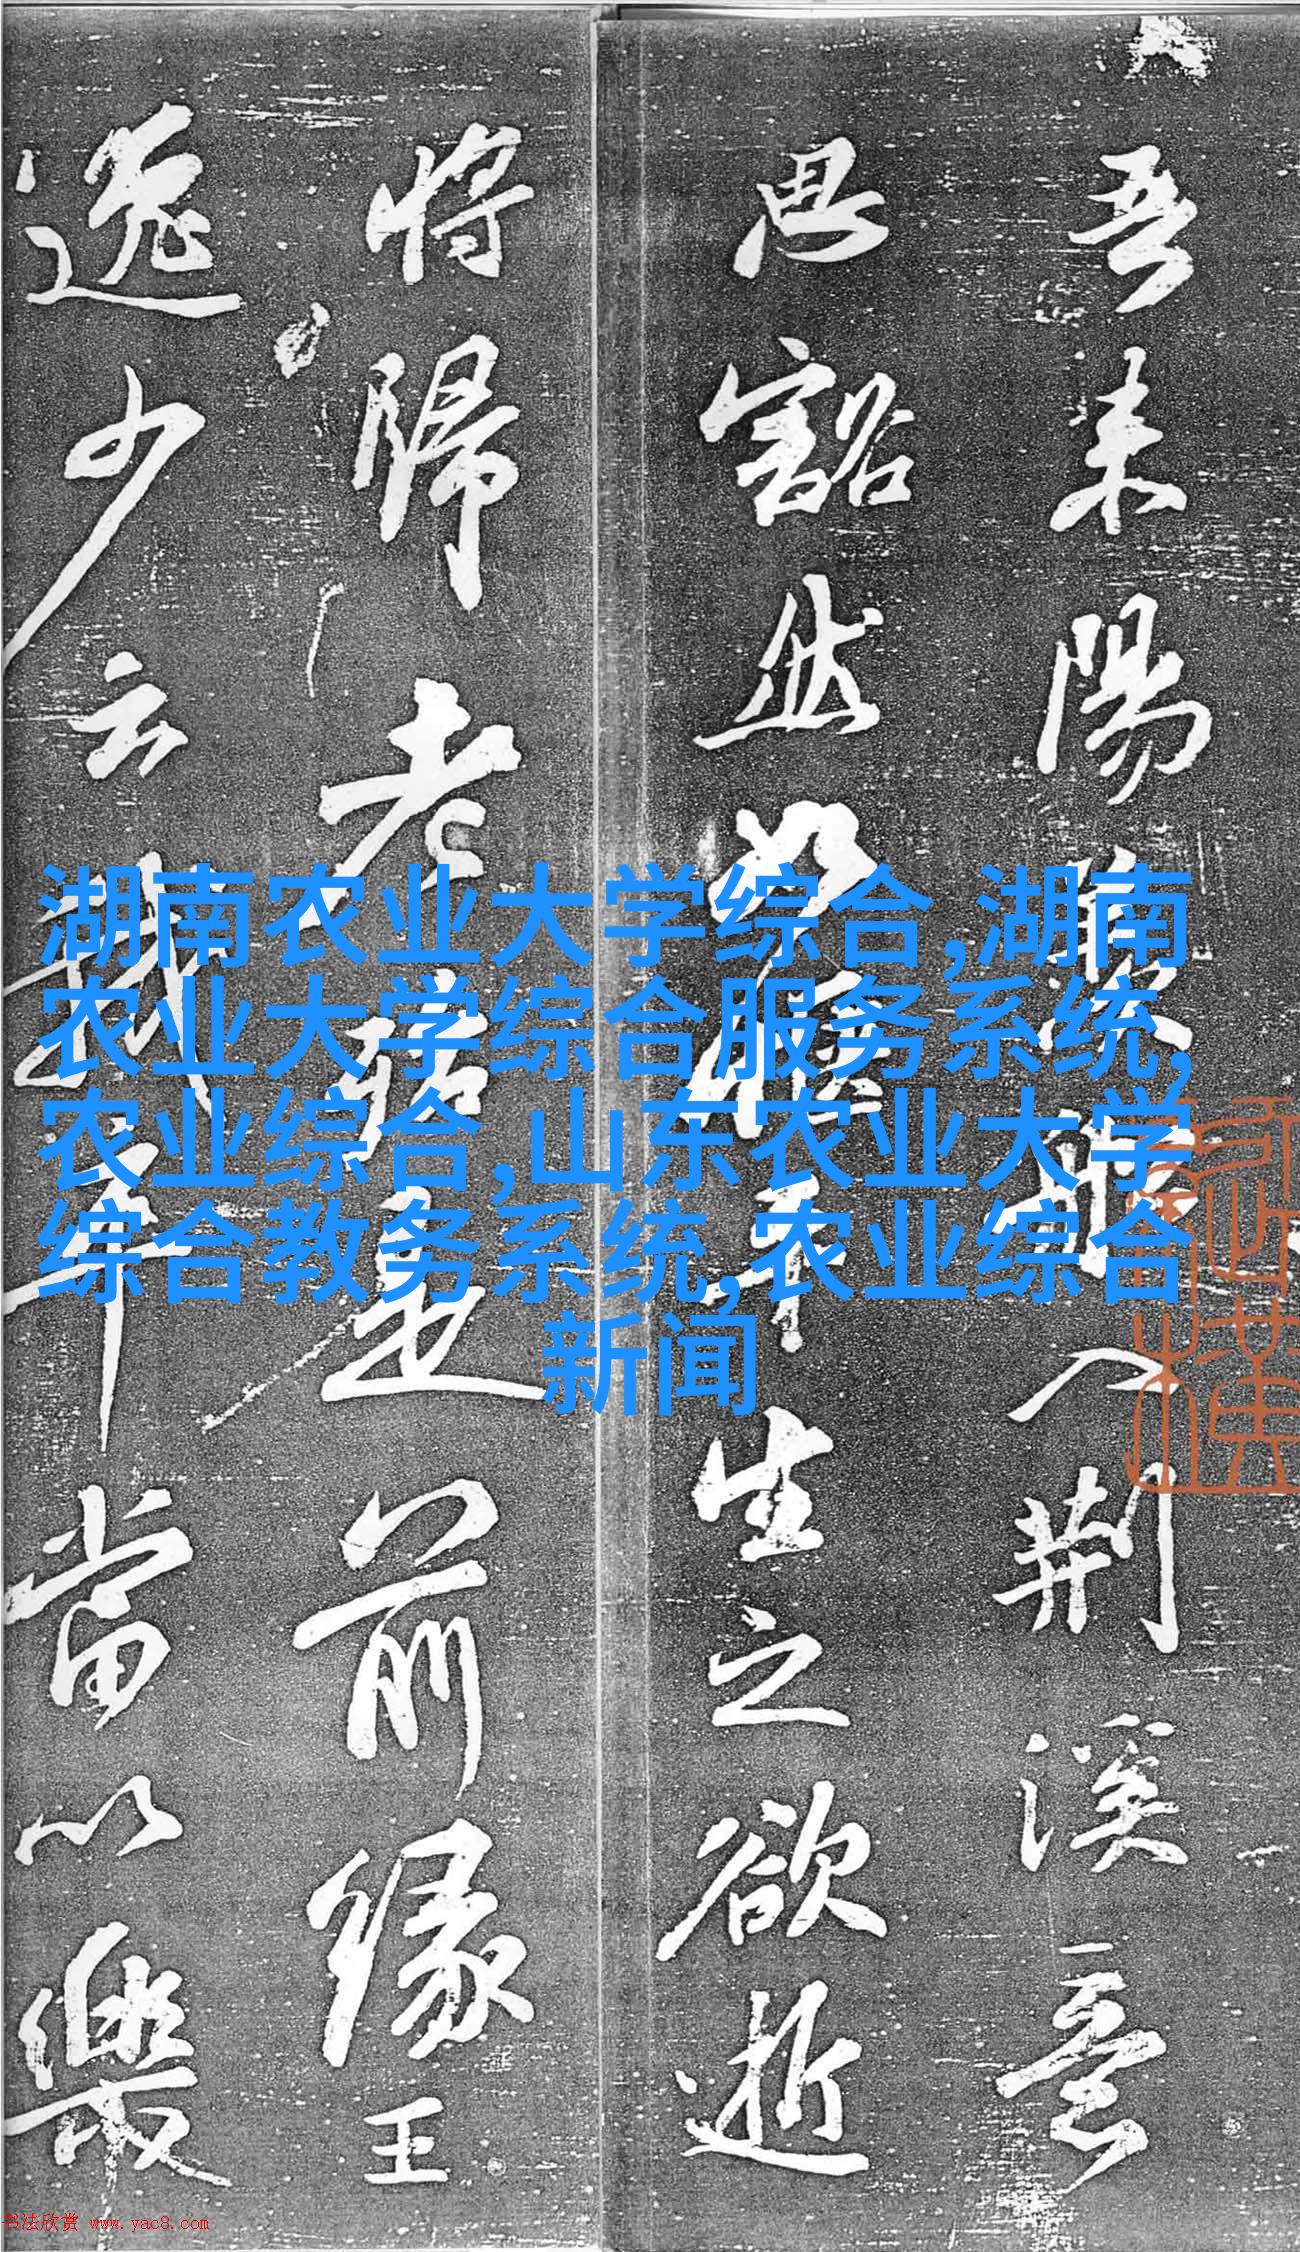 吾来陽羡船入荆溪意
思豁然如愜平生之欲逝
将歸老殆是前緣王
逸少云我卒當以樂
湖南农业大学综合,湖南
农业大学综合服务系统,
农业综合,山东农业大学
综合教务系统,农业综合
新闻
书法欣赏 www.yac8.com